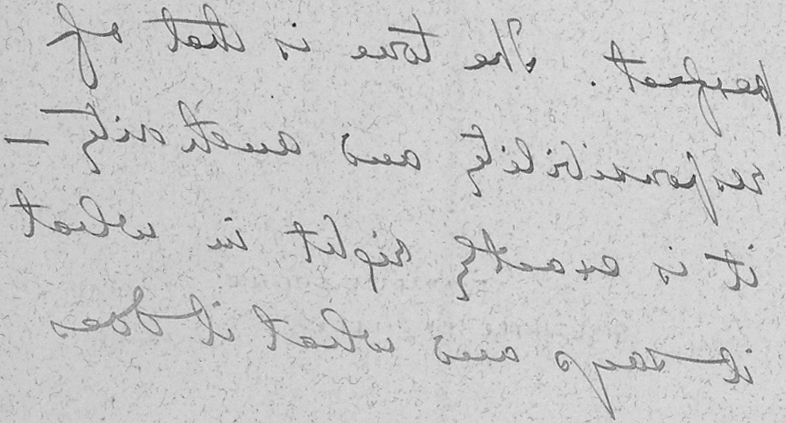 perfect. The tone is that of
responsibility and austerity —
it is exactly right in what
it says and what it does